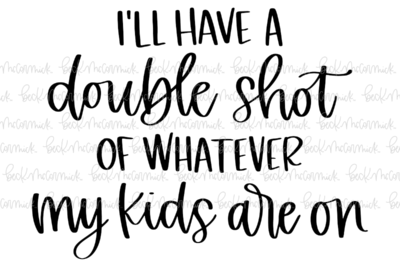 I'LL HAVE A
double shot
OF WHATEVER
my kids are on